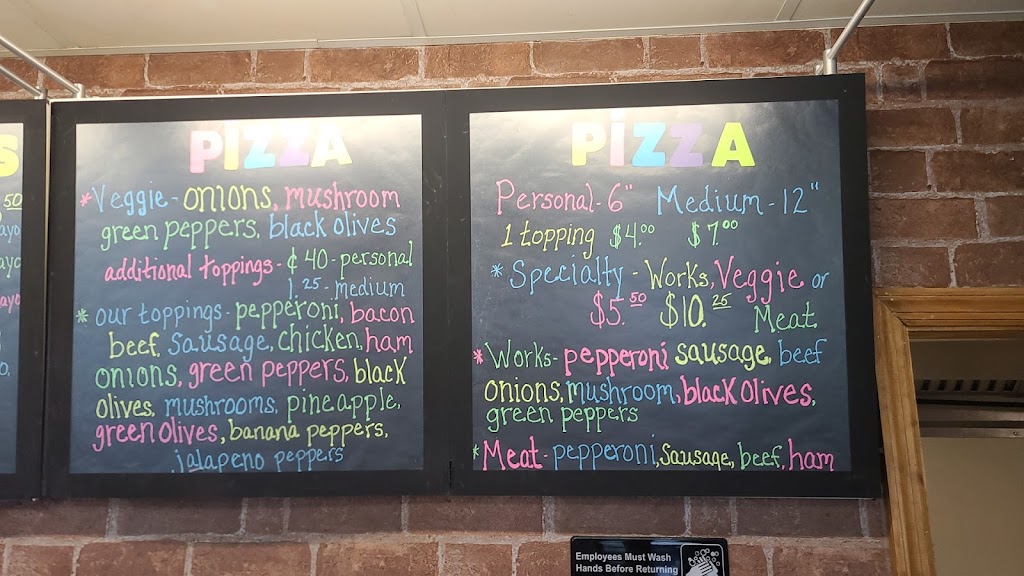 S
50
PIZZA
*Veggie - onions, mushroom
green peppers, black olives
additional toppings - ¢ 40 - personal
1.25 - medium
* our toppings - pepperoni, bacon
beef, sausage, chicken, ham
onions, green peppers, black
olives, mushrooms, pineapple,
green olives, banana peppers,
jalapeno peppers
PIZZA
Personal - 6" Medium - 12"
1 topping $4.00 $7.00
* Specialty - Works, Veggie or
$5.50 $10.25 Meat.
*Works - pepperoni sausage, beef
onions, mushroom, black olives,
green peppers
*Meat - pepperoni, sausage, beef, ham
Employees Must Wash
Hands Before Returning